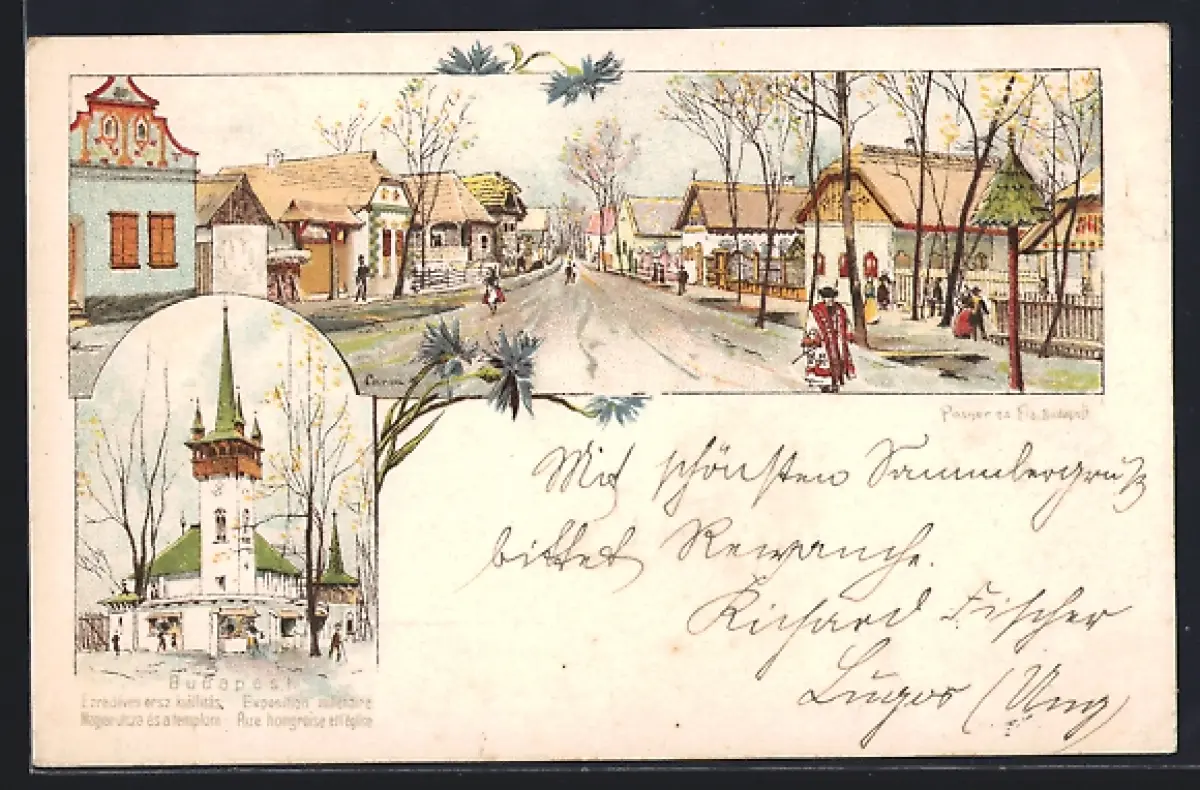 Posner és Fia, Budapest
Mit schönsten Sammlergruß
bittet Rewanche.
Richard Fischer
Lugos (Ung)
Budapest.
Ezredévi orsz. kiállítás, Exposition millénaire
Magyar utcza és a templom Rue hongroise et l'église